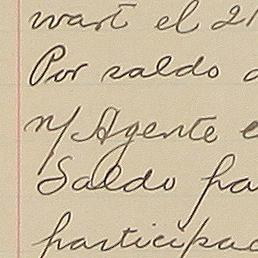 wart el 21
Por saldo
n/ Agente e
Saldo pa
participac